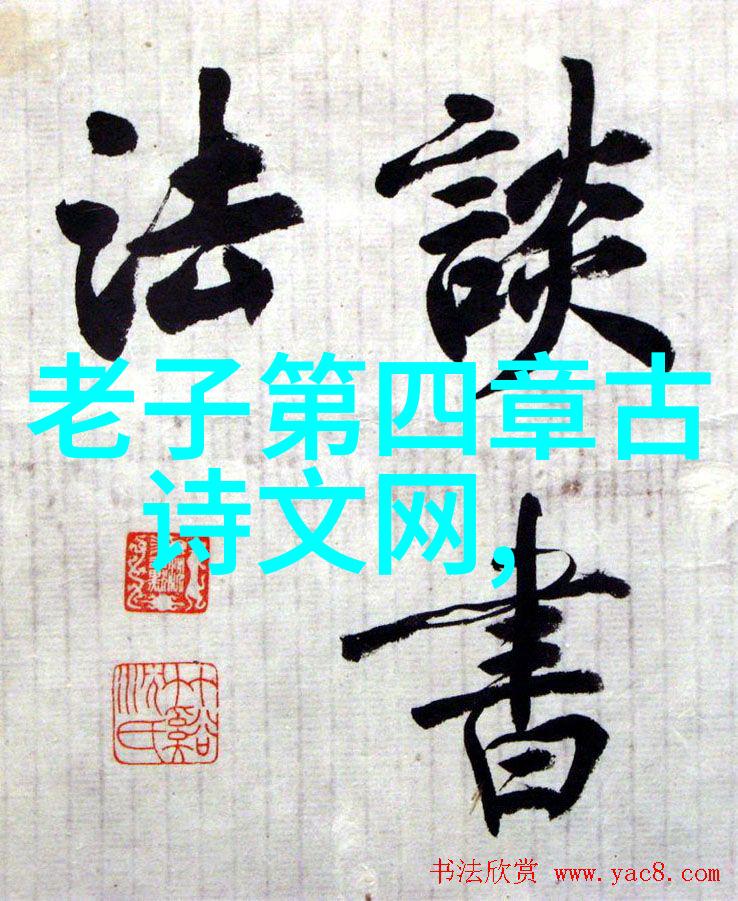 談書
法
老子第四章古
诗文网,
书法欣赏 www.yac8.com